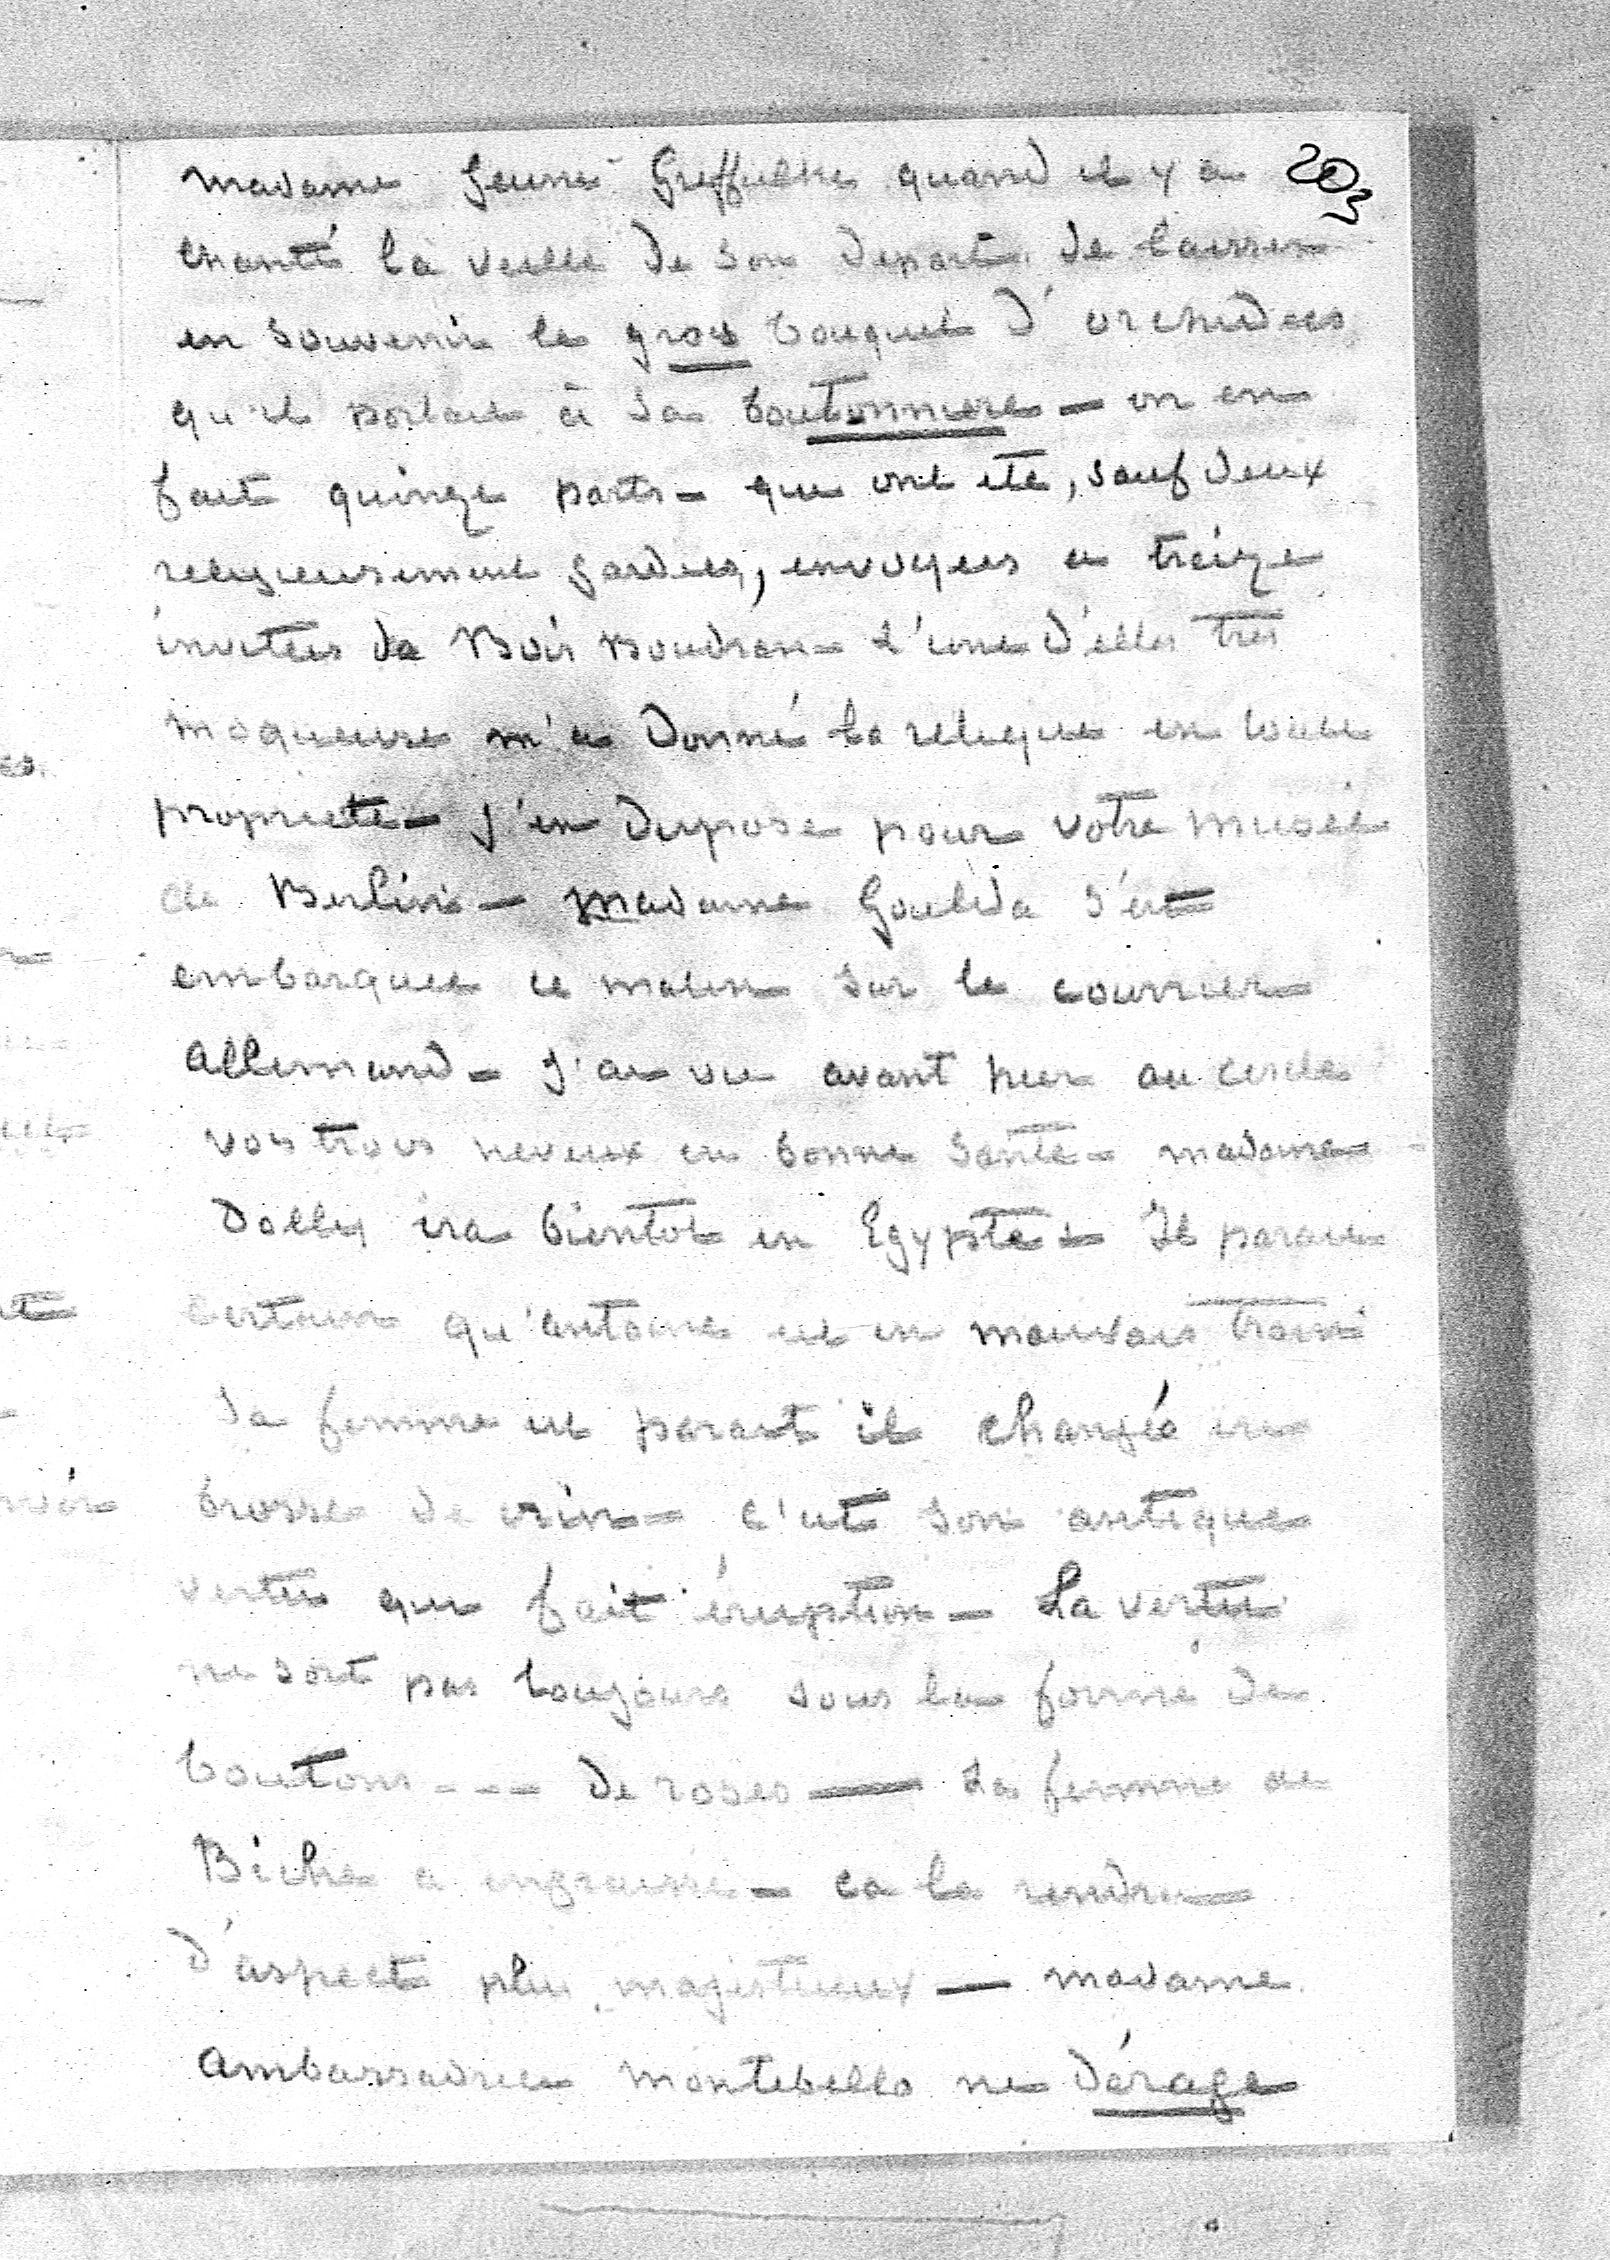 madame jeune Greffulhe quand il y a 203
chanté la veille de son depart, de laisser
en souvenir le gros bouquet d'orchidees
qu'il portait à sa boutonniere - on en
fait quinze parts - qui ont été, sauf deux
religieusement gardees, envoyees a treize
invitées de Bois Boudran - L'une d'elles très
moqueuse m'a donné la relique en toute
propriete - J'en dispose pour votre musée
de Berlin - Madame Goulida s'est
embarquee ce matin sur le courrier
allemand - J'ai vu avant hier au cercle
vos trois neveux en bonne santé - madame
Dolly ira bientot en Egypte - Il parait
certain qu'antoine est en mauvais train
sa femme est parait il changée en
brosse de crin - c'est son antique
vertu qui fait éruption - La vertu
ne sort pas toujours sous la forme de
boutons --- de roses — La femme de
Biche a engraissé - ca la rendra
d'aspect plus majestueux — madame
ambassadrice Montebello ne dérage